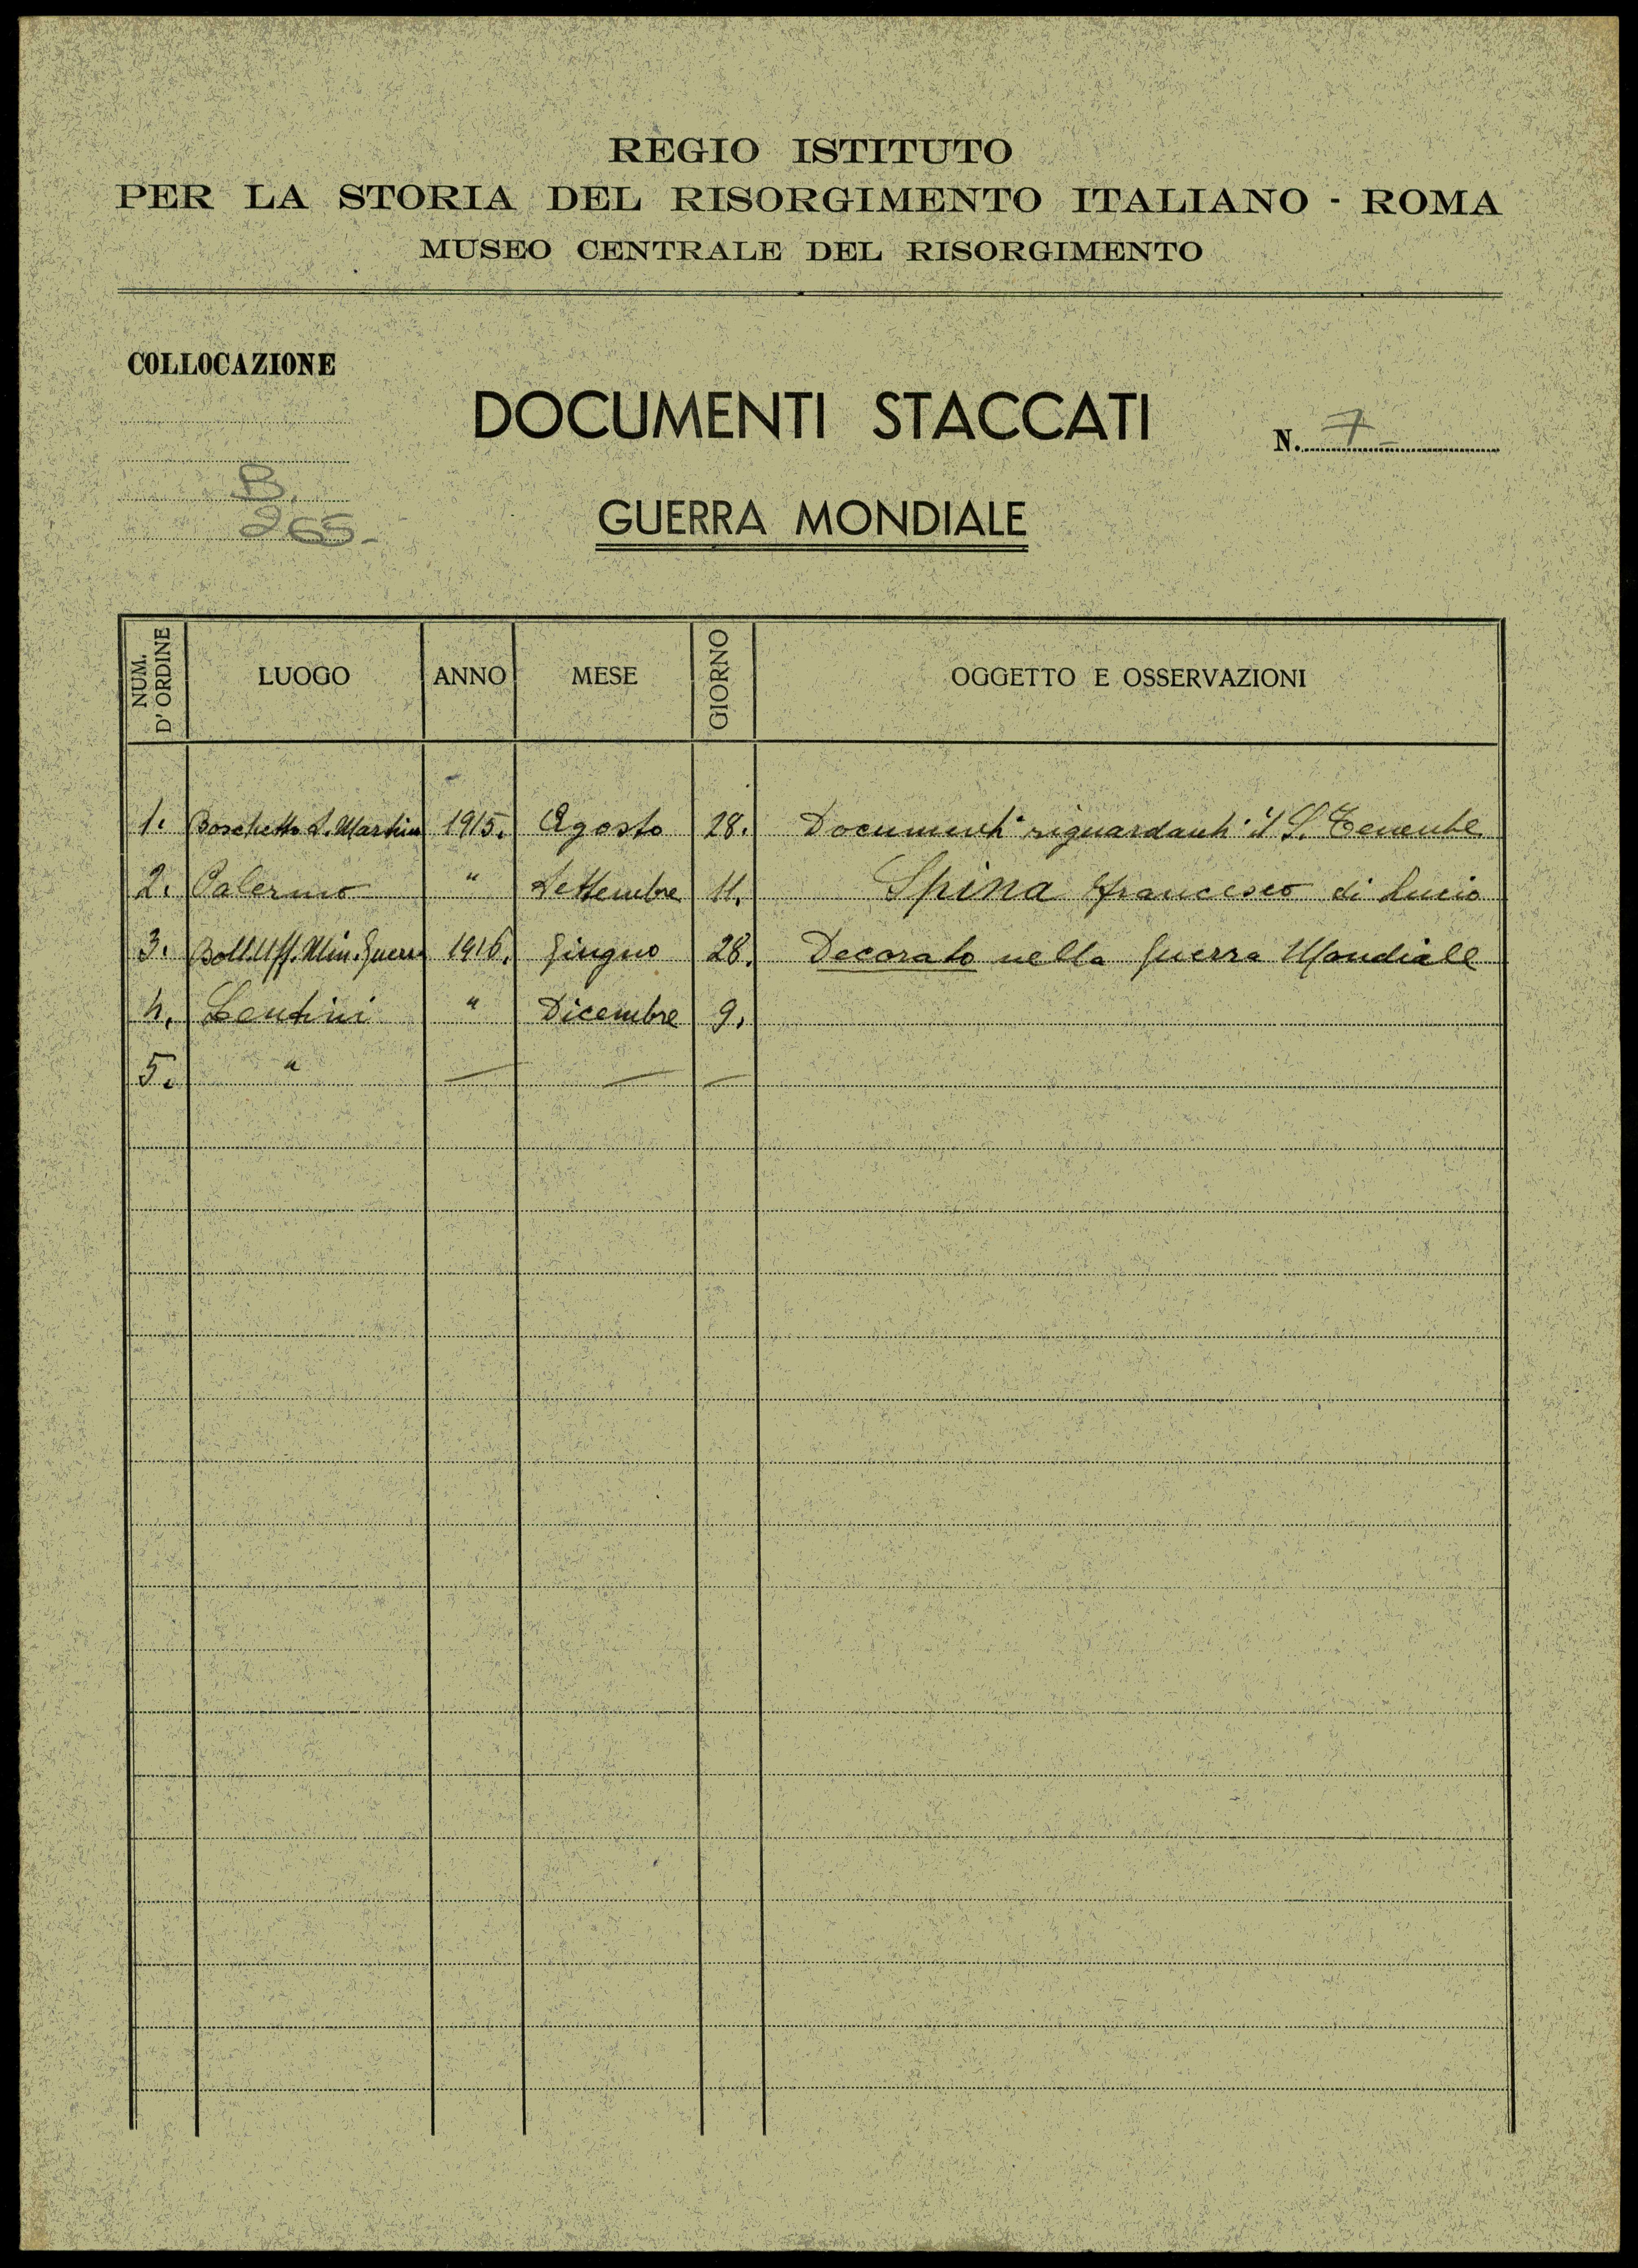 REGIO ISTITUTO
PER LA STORIA DEL RISORGIMENTO ITALIANO - ROMA
MUSEO CENTRALE DEL RISORGIMENTO
COLLOCAZIONE
B.
265.-
DOCUMENTI STACCATI
N. 7-
GUERRA MONDIALE
NUM. D'ORDINE LUOGO ANNO MESE GIORNO OGGETTO E OSSERVAZIONI
1. Boschetto S. Martino 1915. Agosto 28. Documenti riguardanti il S. Tenente
2. Palermo " Settembre 11. Spina Francesco di Lucio
3. Boll. Uff. Min. Guerra 1916. Giugno 28. Decorato nella Guerra Mondiale
4. Lentini " Dicembre 9.
5. " — — —